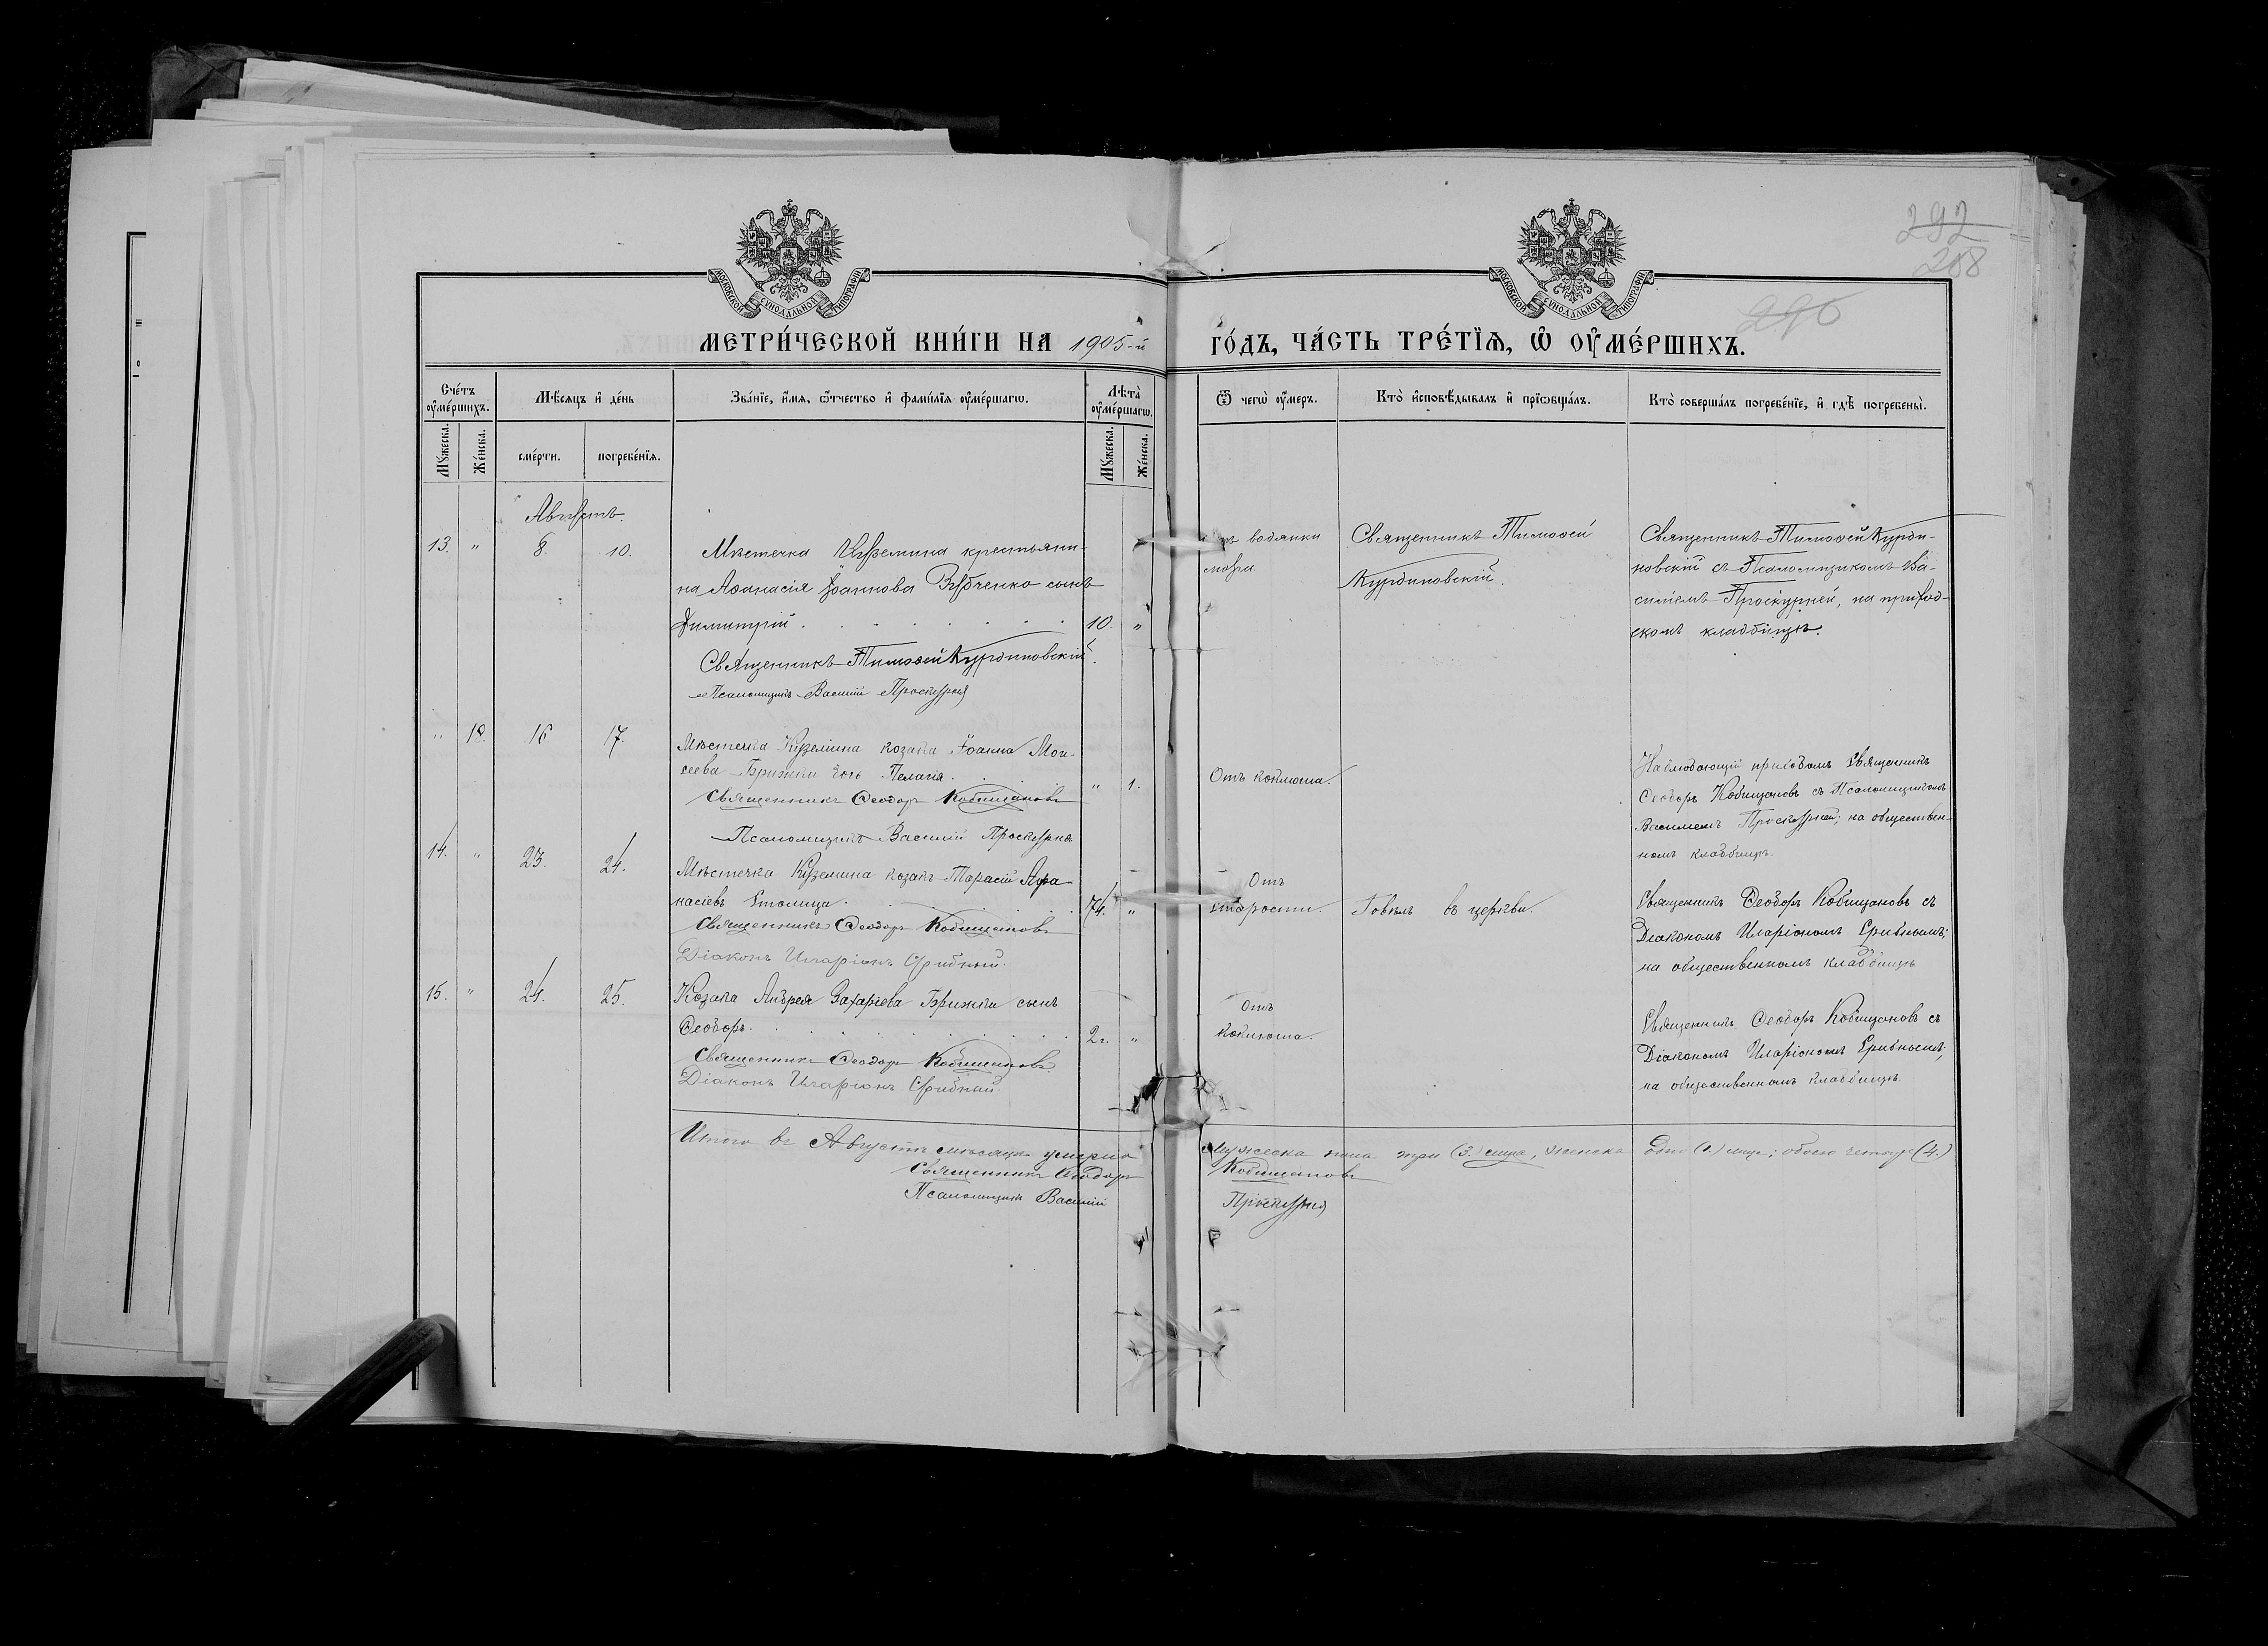 292
288
290
МОСКОВСКОЙ СѴНОДАЛЬНОЙ ТИПОГРАФІИ
МОСКОВСКОЙ СѴНОДАЛЬНОЙ ТИПОГРАФІИ
МЕТРИ́ЧЕСКОЙ КНИ́ГИ НА 1905-й ГО́ДЪ, ЧА́СТЬ ТРЕ́ТІѦ, Ѡ ОУ҆МЕ́РШИХЪ.
Сче́тъ оу҆ме́ршихъ.
Мѣ́сѧцъ и҆ де́нь
Зва́нїе, и҆́мѧ, ѻ҆́тчество и҆ фами́лїѧ оу҆ме́ршагѡ.
Лѣта̀ оу҆ме́ршагѡ.
Ѿ чегѡ̀ оу҆́меръ.
Кто̀ и҆сповѣ́дывалъ и҆ прїѡбща́лъ.
Кто̀ соверша́лъ погребе́нїе, и҆ гдѣ̀ погребены̀.
Мꙋ́жеска.
Же́нска.
сме́рти.
погребе́нїѧ.
Мꙋ́жеска.
Же́нска.
Августъ.
13. " 8. 10.
Мѣстечка Куземина крестьяни-
на Аѳанасія Іоаннова Зубченко сынъ
Димитрій. 10. "
Священникъ Тимоѳей Курдиновскій.
Псаломщикъ Василій Проскурня
Отъ водянки
мозга
Священникъ Тимоѳей
Курдиновскій.
Священникъ Тимоѳей Курди-
новскій съ Псаломщикомъ Ва-
силіемъ Проскурней, на приход-
скомъ кладбищѣ.
" 18. 16. 17.
Мѣстечка Куземина козака Іоанна Мои-
сеева Брижки дочь Пелагія. " 1.
Священникъ Ѳеодоръ Кобищановъ
Псаломщикъ Василій Проскурня
Отъ коклюша.
Наблюдающій приходомъ Священникъ
Ѳеодоръ Кобищановъ съ Псаломщикомъ
Василіемъ Проскурней; на обществен-
номъ кладбищѣ.
14. " 23. 24.
Мѣстечка Куземина козакъ Тарасій Аѳа-
насіевъ Столица. 74. "
Священникъ Ѳеодоръ Кобищановъ
Діаконъ Иларіонъ Срибный.
Отъ
старости.
Говѣлъ въ церкви.
Священникъ Ѳеодоръ Кобищановъ съ
Діакономъ Иларіономъ Срибнымъ;
на общественномъ кладбищѣ
15. " 24. 25.
Козака Андрея Захаріева Брижки сынъ
Ѳеодоръ. 2г. "
Священникъ Ѳеодоръ Кобищановъ.
Діаконъ Иларіонъ Срибный.
Отъ
коклюша.
Священникъ Ѳеодоръ Кобищановъ съ
Діакономъ Иларіономъ Срибнымъ;
на общественномъ кладбищѣ.
Итого въ Августѣ мѣсяцѣ умерло мужеска пола три (3.) лица, женска одно (1.) лице; обоего четыре (4.)
Священникъ Ѳеодоръ Кобищановъ
Псаломщикъ Василій Проскурня